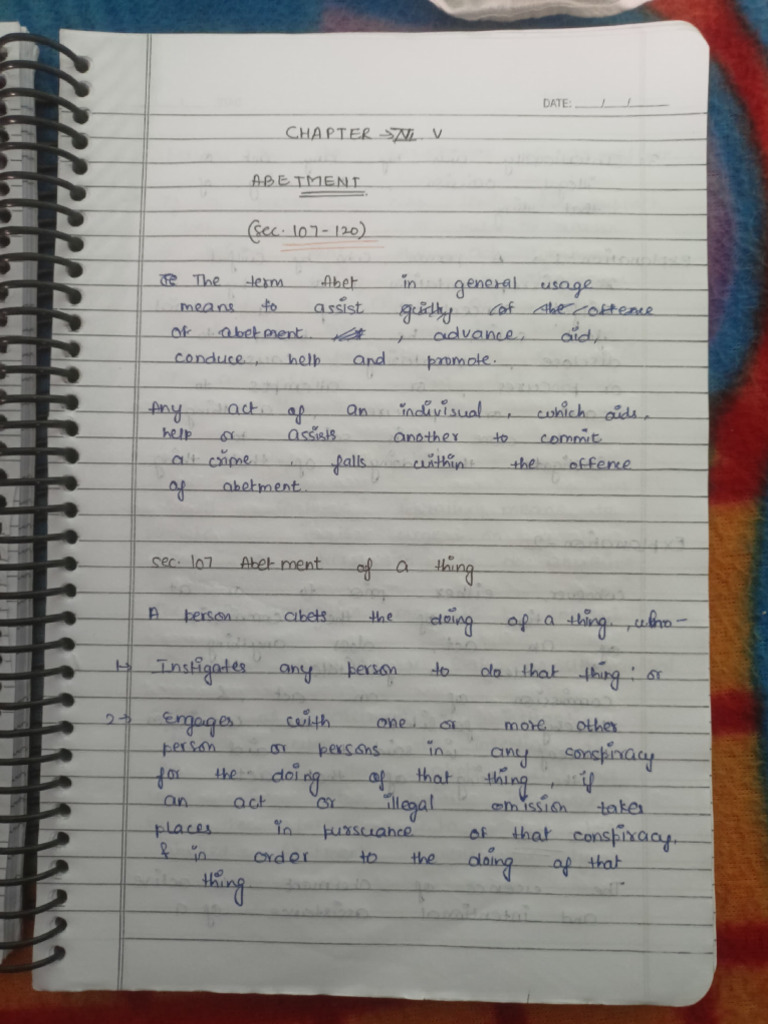 DATE: __/__/____
CHAPTER → V
ABETMENT
(Sec. 107-120)
The term Abet in general usage
means to assist guilty of the offence
of abetment , advance, aid,
conduce, help and promote.
Any act of an indivisual, which aids,
help or assists another to commit
a crime, falls within the offence
of abetment.
Sec. 107 Abetment of a thing
A person abets the doing of a thing, who-
1→ Instigates any person to do that thing: or
2→ Engages with one or more other
person or persons in any conspiracy
for the doing of that thing, if
an act or illegal omission takes
places in pursuance of that conspiracy,
& in order to the doing of that
thing